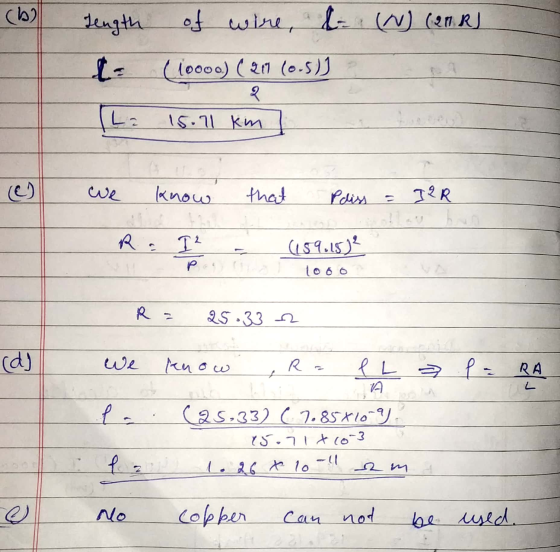 (b) Length of wire, L = (N) (2π R)
L = (10000) (2π (0.5))
2
L = 15.71 km
(c) We know that Pdiss = I²R
R = I² / P = (159.15)² / 1000
R = 25.33 Ω
(d) We know, R = ρ L / A ⇒ ρ = RA / L
ρ = (25.33) (7.85×10⁻⁹)
15.71 × 10⁻³
ρ = 1.26 × 10⁻¹¹ Ω m
(e) No copper can not be used.